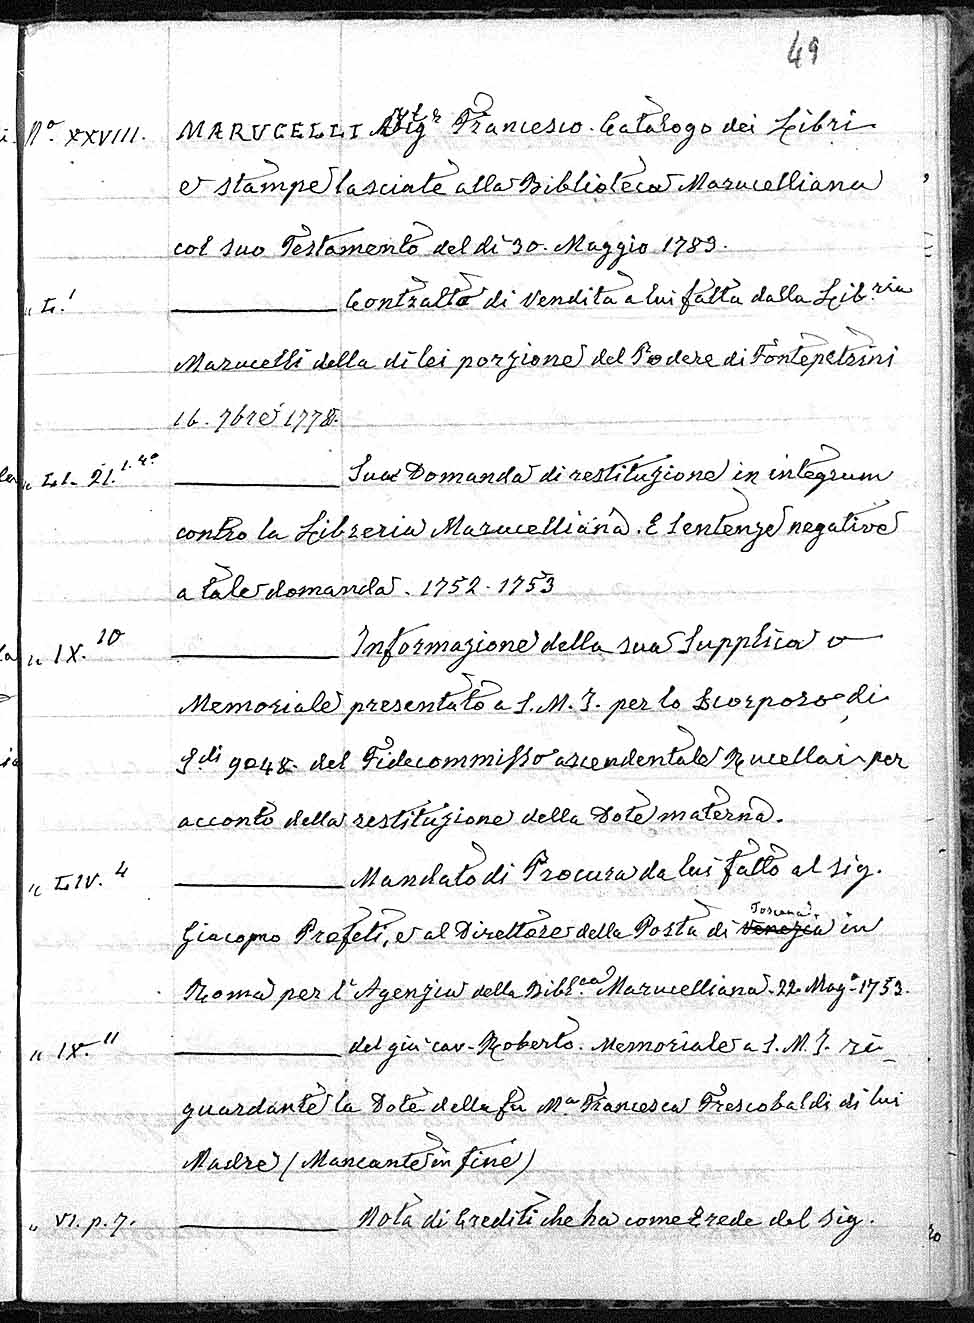 49
Nº XXVIII. MARUCELLI Sigr Francesco. Catalogo dei Libri
e stampe lasciate alla Biblioteca Marucelliana
col suo Testamento del dì 30. Maggio 1783.
" L.1 ——— Contratto di Vendita a lui fatta dalla Lib.ria
Marucelli della di lei porzione del Podere di Fontepetrini
16. 7bre 1778.
" LI. 21. ——— Sua Domanda di restituzione in integrum
contro la Libreria Marucelliana. E Sentenze negative
a tale domanda. 1752. 1753
" IX.10 ——— Informazione della sua Supplica o
Memoriale presentato a S.M.I. per lo Scorporo di
Sdi 9048. del Fidecommisso ascendentale Rucellai per
acconto della restituzione della Dote materna.
" LIV. 4 ——— Mandato di Procura da lui fatto al sig.
Giacomo Profeti, e al Direttore della Posta di Venezia Toscana in
Roma per l'Agenzia della Bibl.ca Marucelliana. 22. Mag.o 1753.
" IX. 11 ——— del già cav. Roberto. Memoriale a S.M.I. ri-
guardante la Dote della fu Ma Francesca Frescobaldi di lui
Madre (Mancante in fine)
" VI. p. 7. ——— Nota di Crediti che ha come Erede del sig.